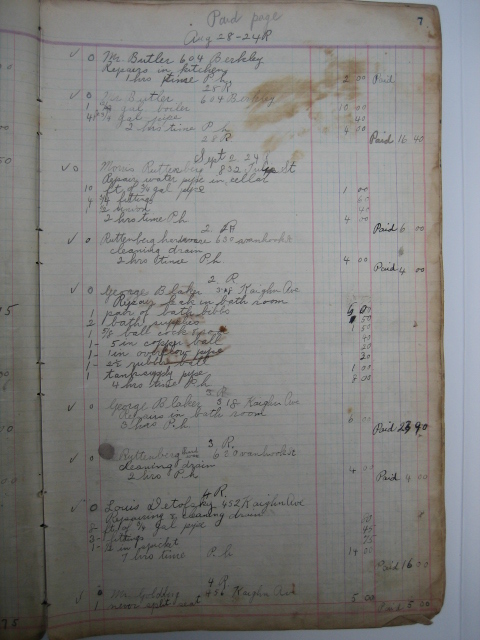 Paid page 7
Aug 28-24 R
✓ 0 Mr. Butler 604 Berkley
Repairs in kitchen
1 hrs time P.h 2 00 Paid
28 R
✓ 0 Mr Butler 604 Berkley
1 gal boiler 10 00
gal pipe 40
2 hrs time P.h 4 00
Paid 16 40
28 R
Sept 2 24
✓ 0 Morris Ruttenberg 832 St
Repair water pipe in cellar
10 ft of 3/4 gal pipe 1 00
4 3/4 fittings 60
union 40
2 hrs time P.h 4 00
Paid 6 00
2 R
✓ 0 Ruttenberg hardware 630 vanhook st
cleaning drain
2 hrs time P.h 4 00
Paid 4 00
2 R
✓ 0 George Blaker 318 Kaighn Ave
Repairs in bath room
1 pair of bath bibbs 6 00
2 bath supplies 50
1 ball cock 1 50
1- 5 in copper ball
1- 1 in overflow pipe 20
1- rubber ball 20
1 tank pipe 1 00
4 hrs time P.h 8 00
✓ 0 George Blaker 318 Kaighn Ave
Repairs in bath room
3 hrs P.h 6 00
Paid 90
3 R.
✓ 0 Ruttenberg 630 vanhook st
cleaning drain
2 hrs P.h 4 00
Paid 4 00
4 R.
✓ 0 Louis Detofsky 452 Kaighn Ave
Repairing & cleaning drain
ft of 3/4 gal pipe
fittings
75
7 hrs time P.h 14 00
Paid 16 00
4 R
✓ Mr Golding Kaighn Ave
1 new split seat 5 00
Paid 5 00